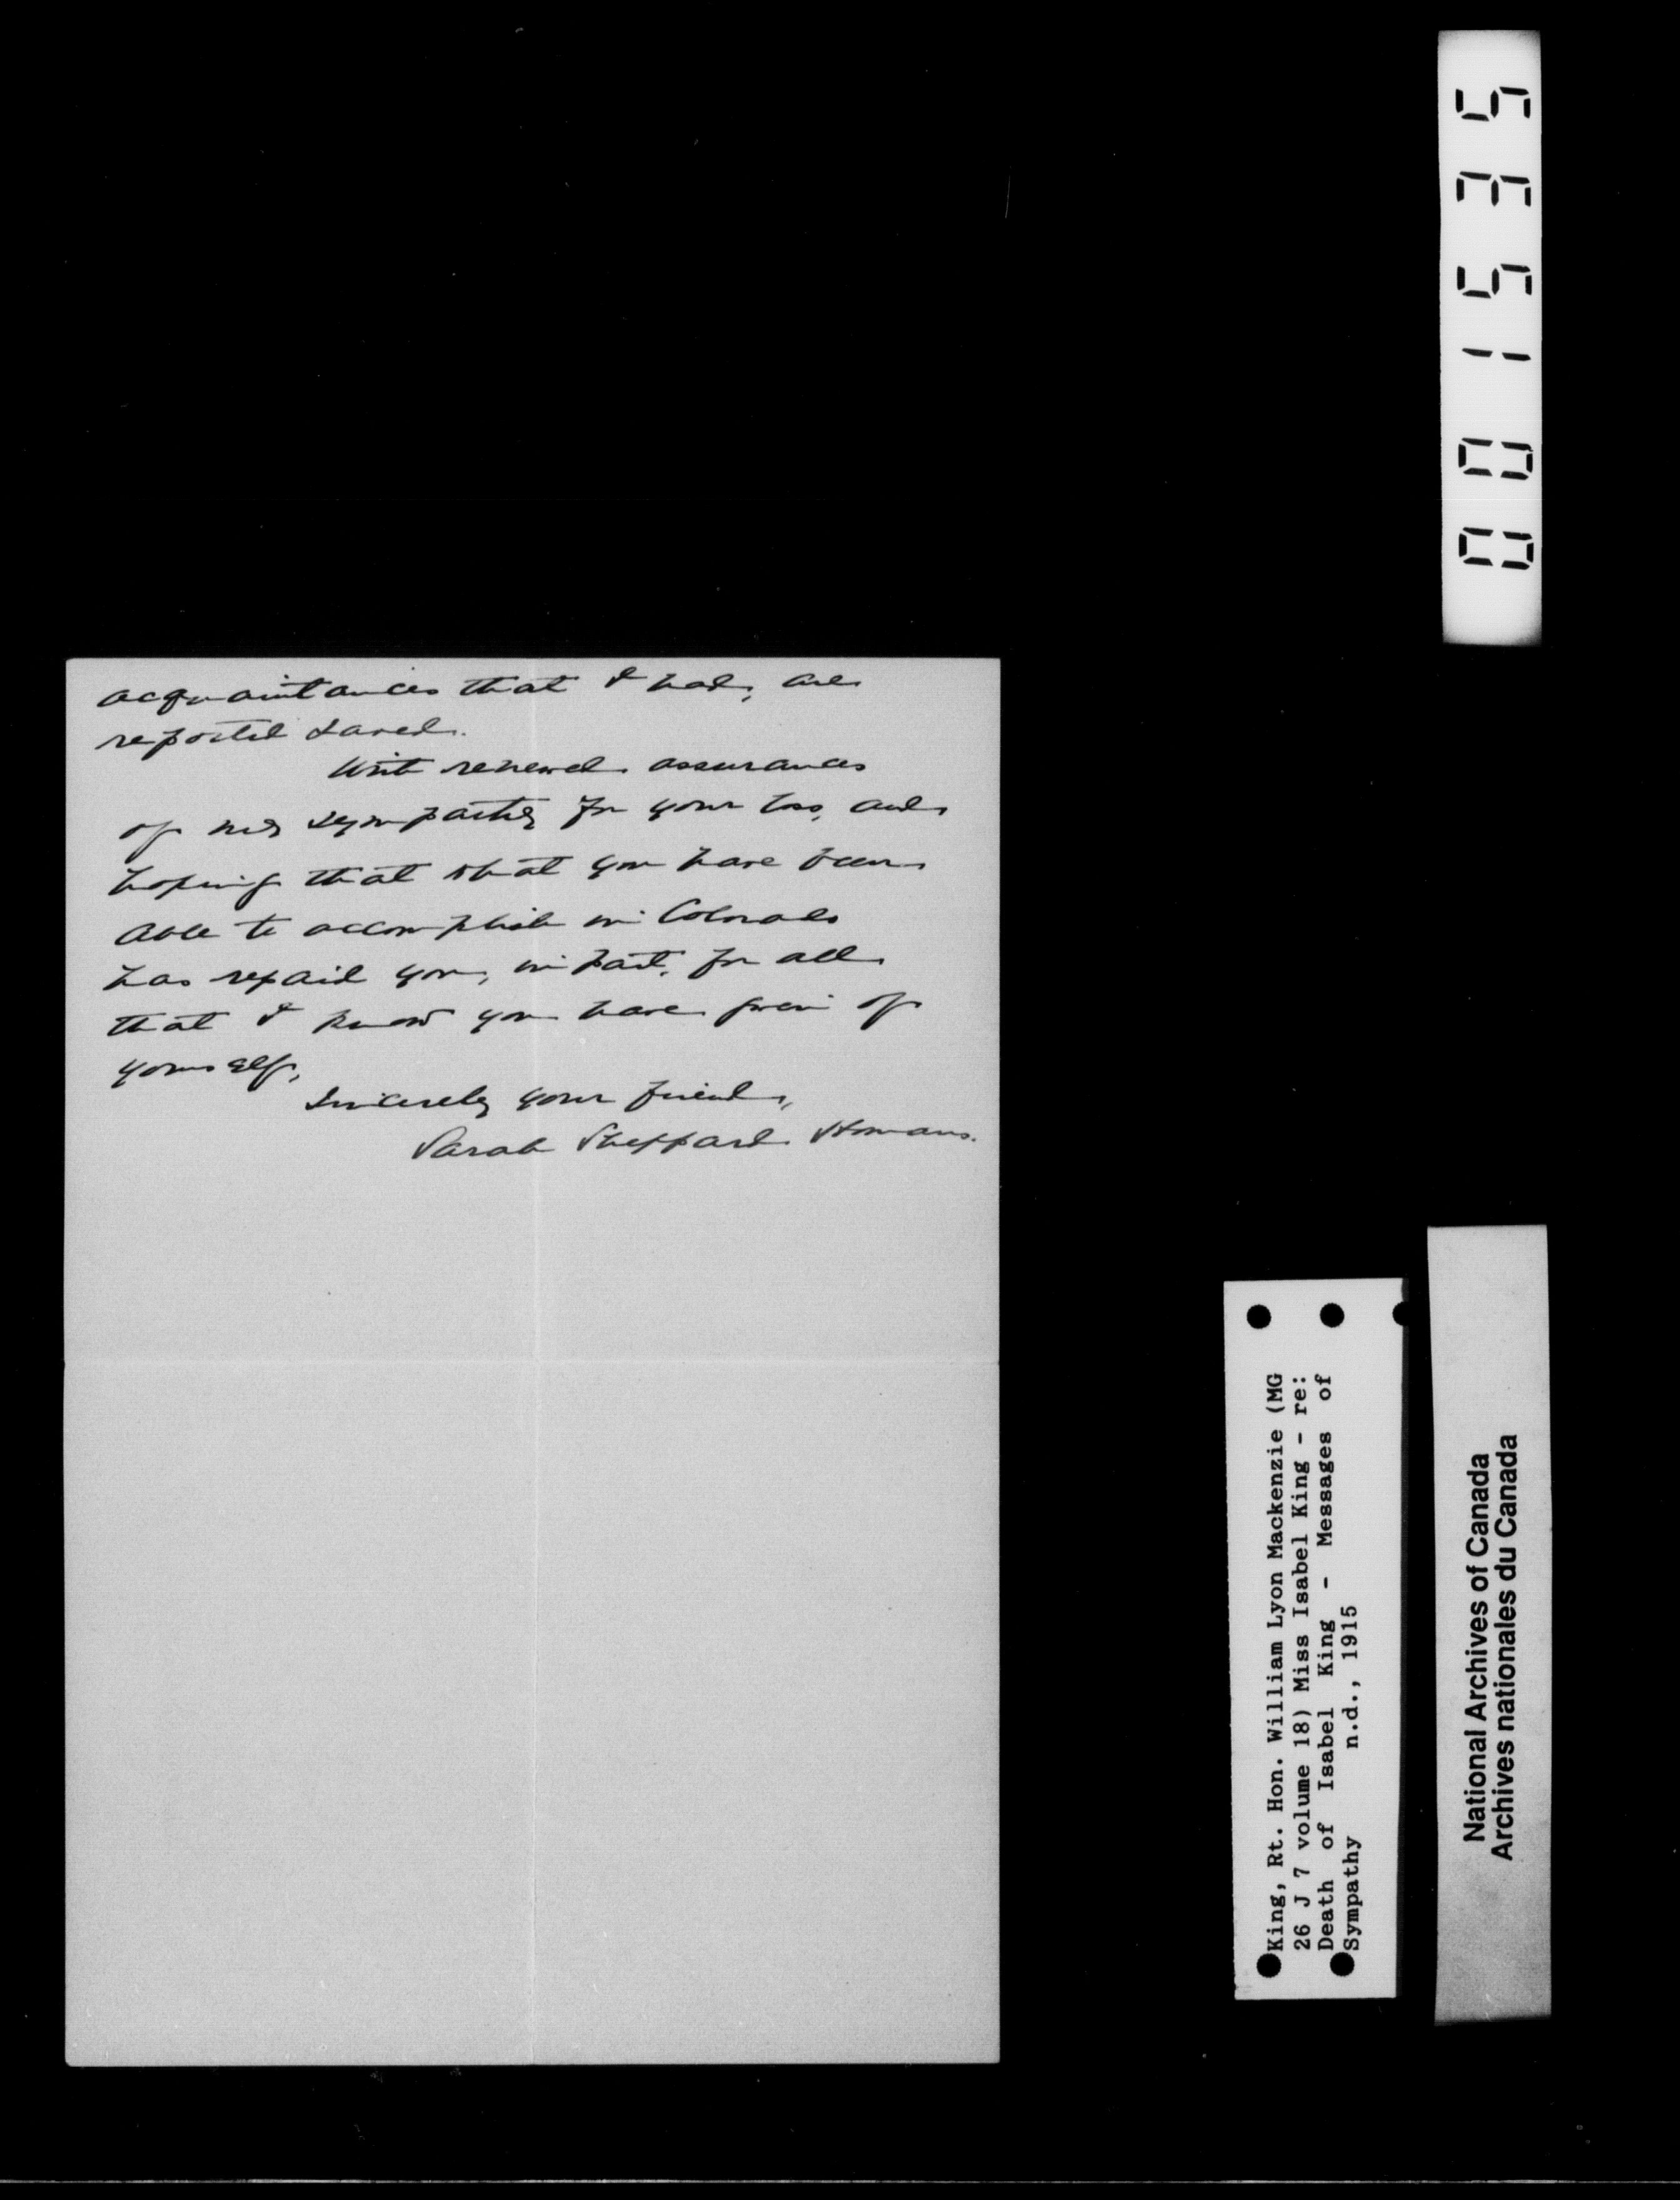 acquaintances that I had, are
reported saved.
With renewed assurances
of my sympathy for your loss, and
hoping that what you have been
able to accomplish in Colorado
has repaid you, in part, for all
that I know you have given of
yourself,
Sincerely your friend,
Sarah Sheppard Homans.
001535
King, Rt. Hon. William Lyon Mackenzie (MG
26 J 7 volume 18) Miss Isabel King - re:
Death of Isabel King - Messages of
Sympathy n.d., 1915
National Archives of Canada
Archives nationales du Canada